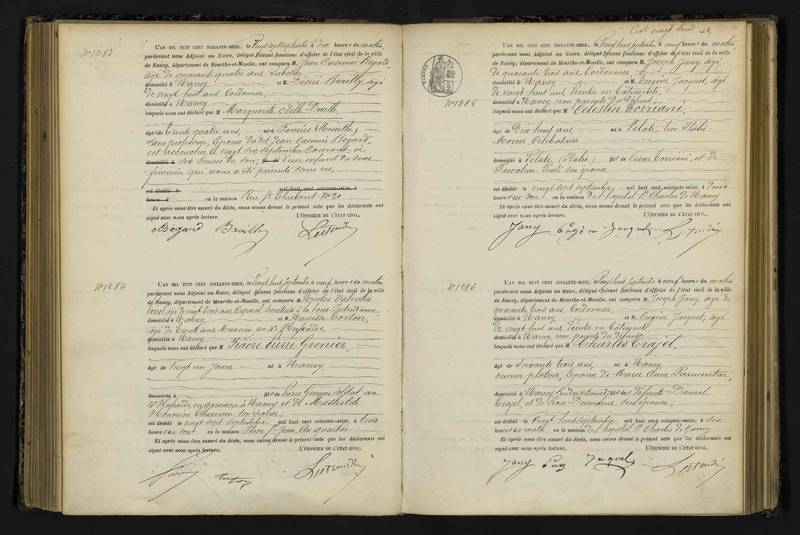 N° 1283
L'AN MIL HUIT CENT SOIXANTE-SEIZE, le Vingt sept septembre à dix heures du matin
pardevant nous Adjoint au Maire, délégué faisant fonctions d'officier de l'état civil de la ville
de Nancy, département de Meurthe-et-Moselle, ont comparu M. Jean Casimir Bogard
âgé de quarante quatre ans
domicilié à Nancy et M. Désiré âgé
de vingt huit ans, Cordonnier,
domicilié à Nancy
lesquels nous ont déclaré que M Marguerite
âgée de trente quatre ans né à (Meurthe)
sans profession, Épouse dudit Jean Casimir Bogard,
est accouchée le vingt six septembre courant, à
domicilié à six heures du soir, fils de d'un enfant du sexe
féminin qui nous a été présenté sans vie,
est décédé le mil huit cent soixante-seize, à
heure d en la maison Rue St Thiebaut N° 20
Et après nous être assuré du décès, nous avons dressé le présent acte que les déclarants ont
signé avec nous après lecture. L'OFFICIER DE L'ÉTAT CIVIL,
Bogard
N° 1284
L'AN MIL HUIT CENT SOIXANTE-SEIZE, le Vingt huit septembre à neuf heures du matin
pardevant nous Adjoint au Maire, délégué faisant fonctions d'officier de l'état civil de la ville
de Nancy, département de Meurthe-et-Moselle, ont comparu M. Nicolas Valentin
de vingt ans, à la Sous-Intendance,
domicilié à Nancy et M.
âgé de trente ans
domicilié à Nancy
lesquels nous ont déclaré que M Fiacre Pierre Grenier,
âgé de vingt un jours né à Nancy
domicilié à fils de Pierre Grenier Soldat au
en garnison à Nancy et de Mathilde
Honorine son épouse,
est décédé le vingt sept septembre mil huit cent soixante-seize, à trois
heures du soir en la maison Place St Jean, au quartier
Et après nous être assuré du décès, nous avons dressé le présent acte que les déclarants ont
signé avec nous après lecture. L'OFFICIER DE L'ÉTAT CIVIL,
Cent vingt trois
N° 1285
L'AN MIL HUIT CENT SOIXANTE-SEIZE, le Vingt huit septembre à neuf heures du matin
pardevant nous Adjoint au Maire, délégué faisant fonctions d'officier de l'état civil de la ville
de Nancy, département de Meurthe-et-Moselle, ont comparu M. Joseph Jany âgé
de quarante trois ans, Cordonnier,
domicilié à Nancy et M. Eugène Jacquet, âgé
de vingt huit ans, Peintre en bâtiments,
domicilié à Nancy, non parents du défunt,
lesquels nous ont déclaré que M Celestin Corriani,
âgé de Dix huit ans né à Pelate, en Italie
Maçon, Célibataire
domicilié à Pelate, (Italie) fils de Cesar Corriani, et de
son épouse
est décédé le vingt sept septembre mil huit cent soixante-seize, à
heures du soir en la maison de l'hôpital St Charles de Nancy
Et après nous être assuré du décès, nous avons dressé le présent acte que les déclarants ont
signé avec nous après lecture. L'OFFICIER DE L'ÉTAT CIVIL,
Jany Eugène Jacquet
N° 1286
L'AN MIL HUIT CENT SOIXANTE-SEIZE, le Vingt huit septembre à neuf heures du matin
pardevant nous Adjoint au Maire, délégué faisant fonctions d'officier de l'état civil de la ville
de Nancy, département de Meurthe-et-Moselle, ont comparu M. Joseph Jany âgé de
quarante trois ans, Cordonnier,
domicilié à Nancy et M. Eugène Jacquet, âgé
de vingt huit ans, Peintre en bâtiments,
domicilié à Nancy, non parents du défunt,
lesquels nous ont déclaré que M Charles Crajet
âgé de soixante trois ans, né à Nancy,
ouvrier platrier, Époux de Marie Anne Parmentier,
domicilié à Nancy fils des défunts Daniel
Crajet, et de Rose son épouse,
est décédé le Vingt huit septembre mil huit cent soixante-seize, à six
heures du matin en la maison de l'hôpital St Charles de Nancy
Et après nous être assuré du décès, nous avons dressé le présent acte que les déclarants ont
signé avec nous après lecture. L'OFFICIER DE L'ÉTAT CIVIL,
Jany Eug Jacquet